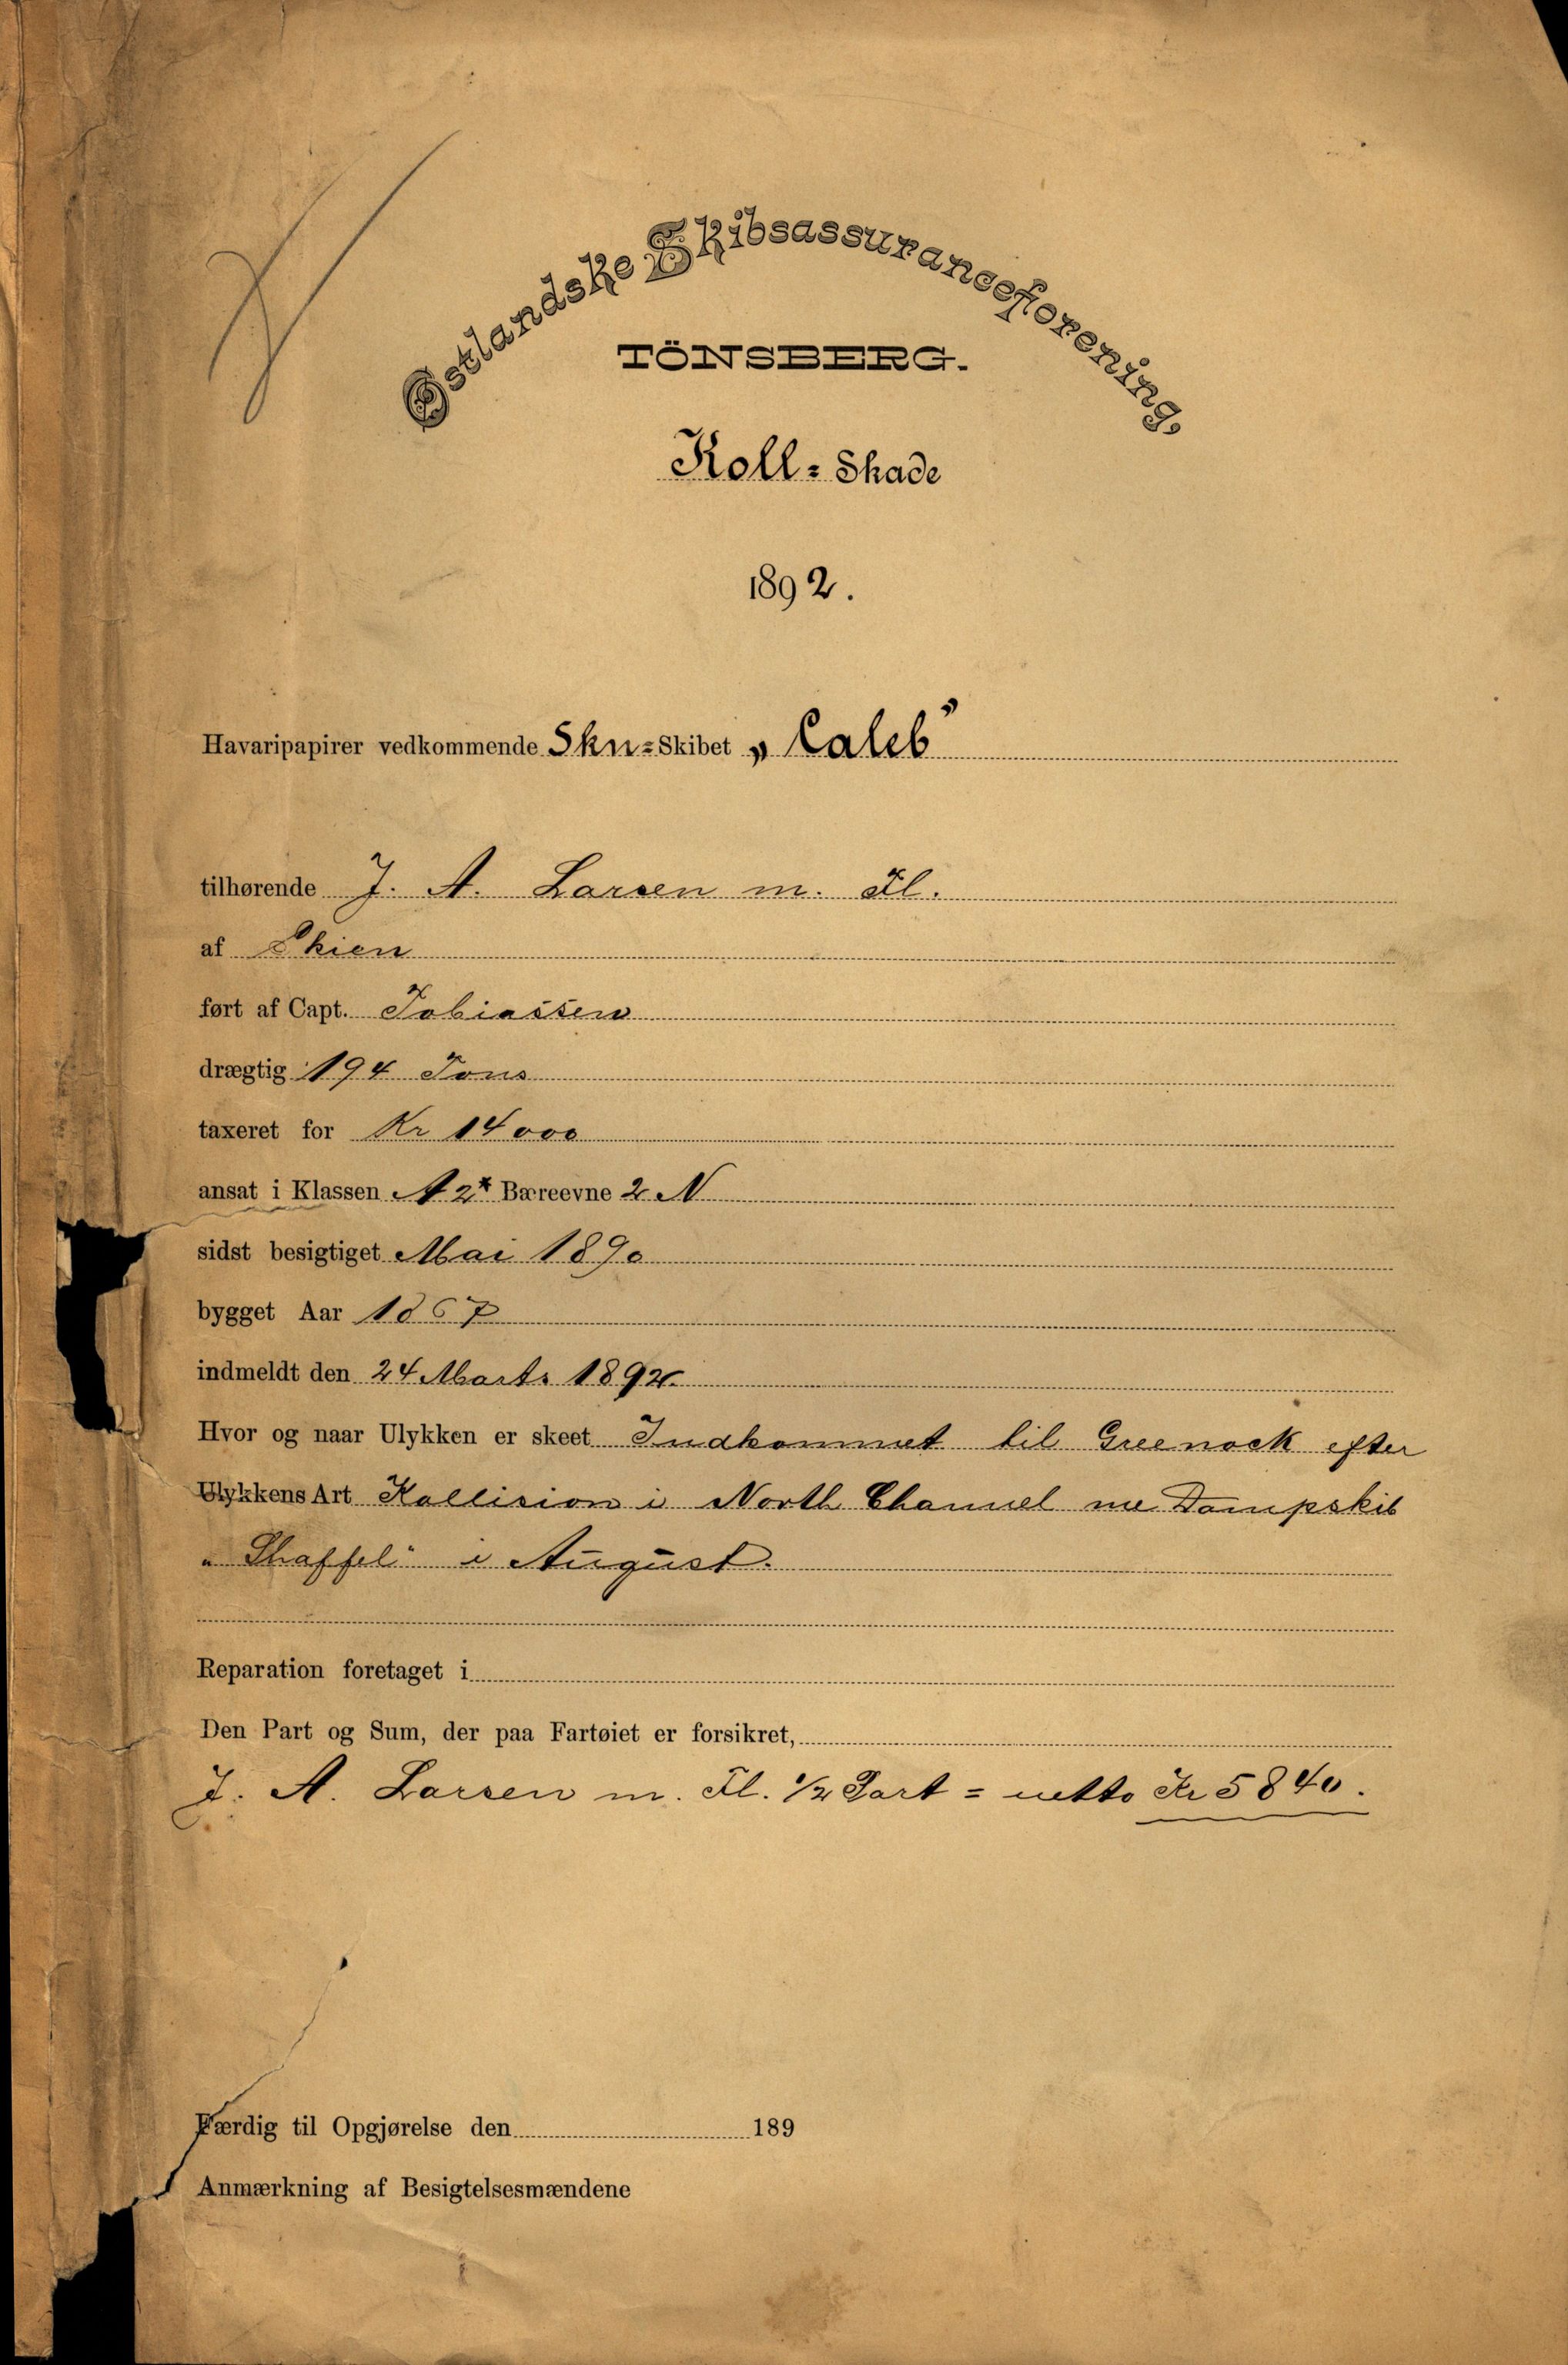 Østlandske Skibsassuranceforening,
TÖNSBERG.
Koll= Skade
1892.
Havaripapirer vedkommende Skn=Skibet „Caleb”
tilhørende J. A. Larsen m. Fl.
af Skien
ført af Capt. Tobiassen
drægtig 194 Tons
taxeret for Kr 14000
ansat i Klassen A2* Bæreevne 2 N
sidst besigtiget Mai 1890
bygget Aar 1867
indmeldt den 24 Marts 1892.
Hvor og naar Ulykken er skeet Indkommet til Greenock efter
Ulykkens Art Kollision i North Channel me Dampskib
„Shaffel“ i August.
Reparation foretaget i
Den Part og Sum, der paa Fartøiet er forsikret,
J. A. Larsen m. Fl. 1/2 Part = netto Kr 5840.
Færdig til Opgjørelse den 189
Anmærkning af Besigtelsesmændene